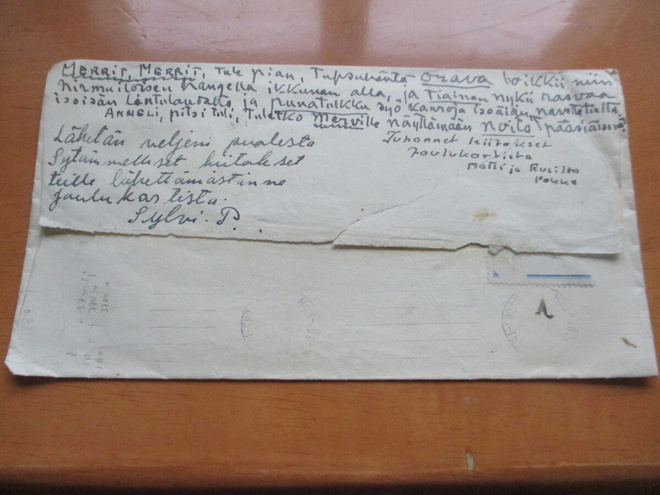 MERRIT, MERRIT, tule pian, Tupsuhäntä orava loikkii niin
hirmuiloisen hangella ikkunan alla, ja Tiainen nykii rasvaa
isoisän lintulaudalta ja punatulkku syö kauroja isoäidin
ANNELI, pitsi tuli, Tuletko Merville näyttämään noita pääsiäisenä
Lähetän veljeni puolesta
Sytämmelliset kiitokset
teille lähettämästänne
joulukortista.
Sylvi. P.
Tuhannet kiitokset
Joulukortista
Matti ja
Pokka